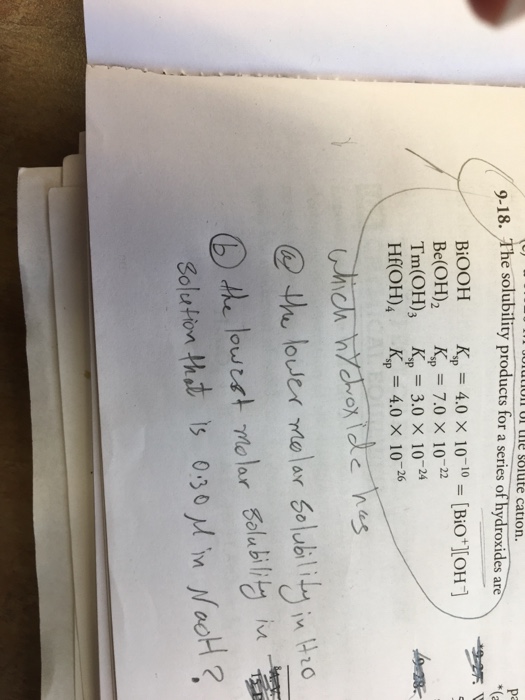 of the solute cation.
9-18. The solubility products for a series of hydroxides are
BiOOH Ksp = 4.0 × 10⁻¹⁰ = [BiO⁺][OH⁻]
Be(OH)₂ Ksp = 7.0 × 10⁻²²
Tm(OH)₃ Ksp = 3.0 × 10⁻²⁴
Hf(OH)₄ Ksp = 4.0 × 10⁻²⁶
which hydroxide has
(a) the lower molar solubility in H₂O
(b) the lowest molar solubility in
solution that is 0.30 M in NaOH?